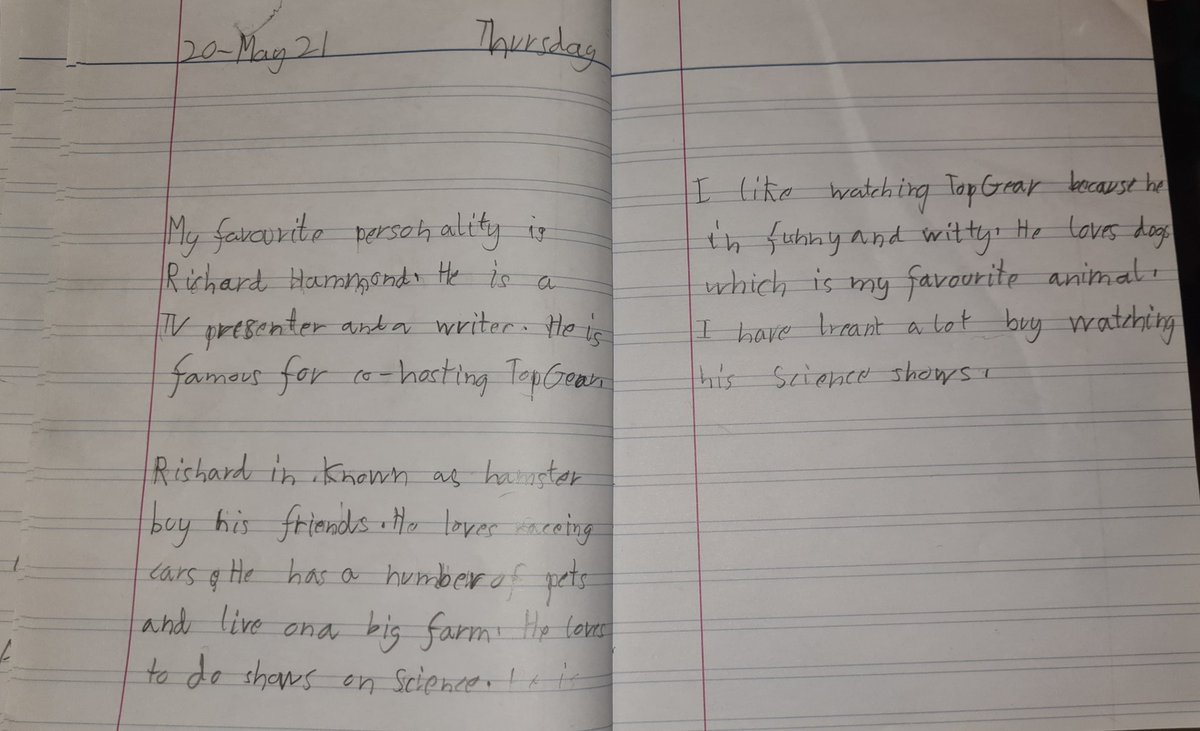 20-May 21 Thursday
My favourite personality is
Richard Hammond. He is a
TV presenter and a writer. He is
famous for co-hosting TopGear.
Rishard in known as hamster
buy his friends. He loves raceing
cars. He has a number of pets
and live on a big farm. He loves
to do shows on Science.
I like watching TopGear because he
in funny and witty. He loves dogs
which is my favourite animal.
I have lreant a lot buy watching
his Science shows.